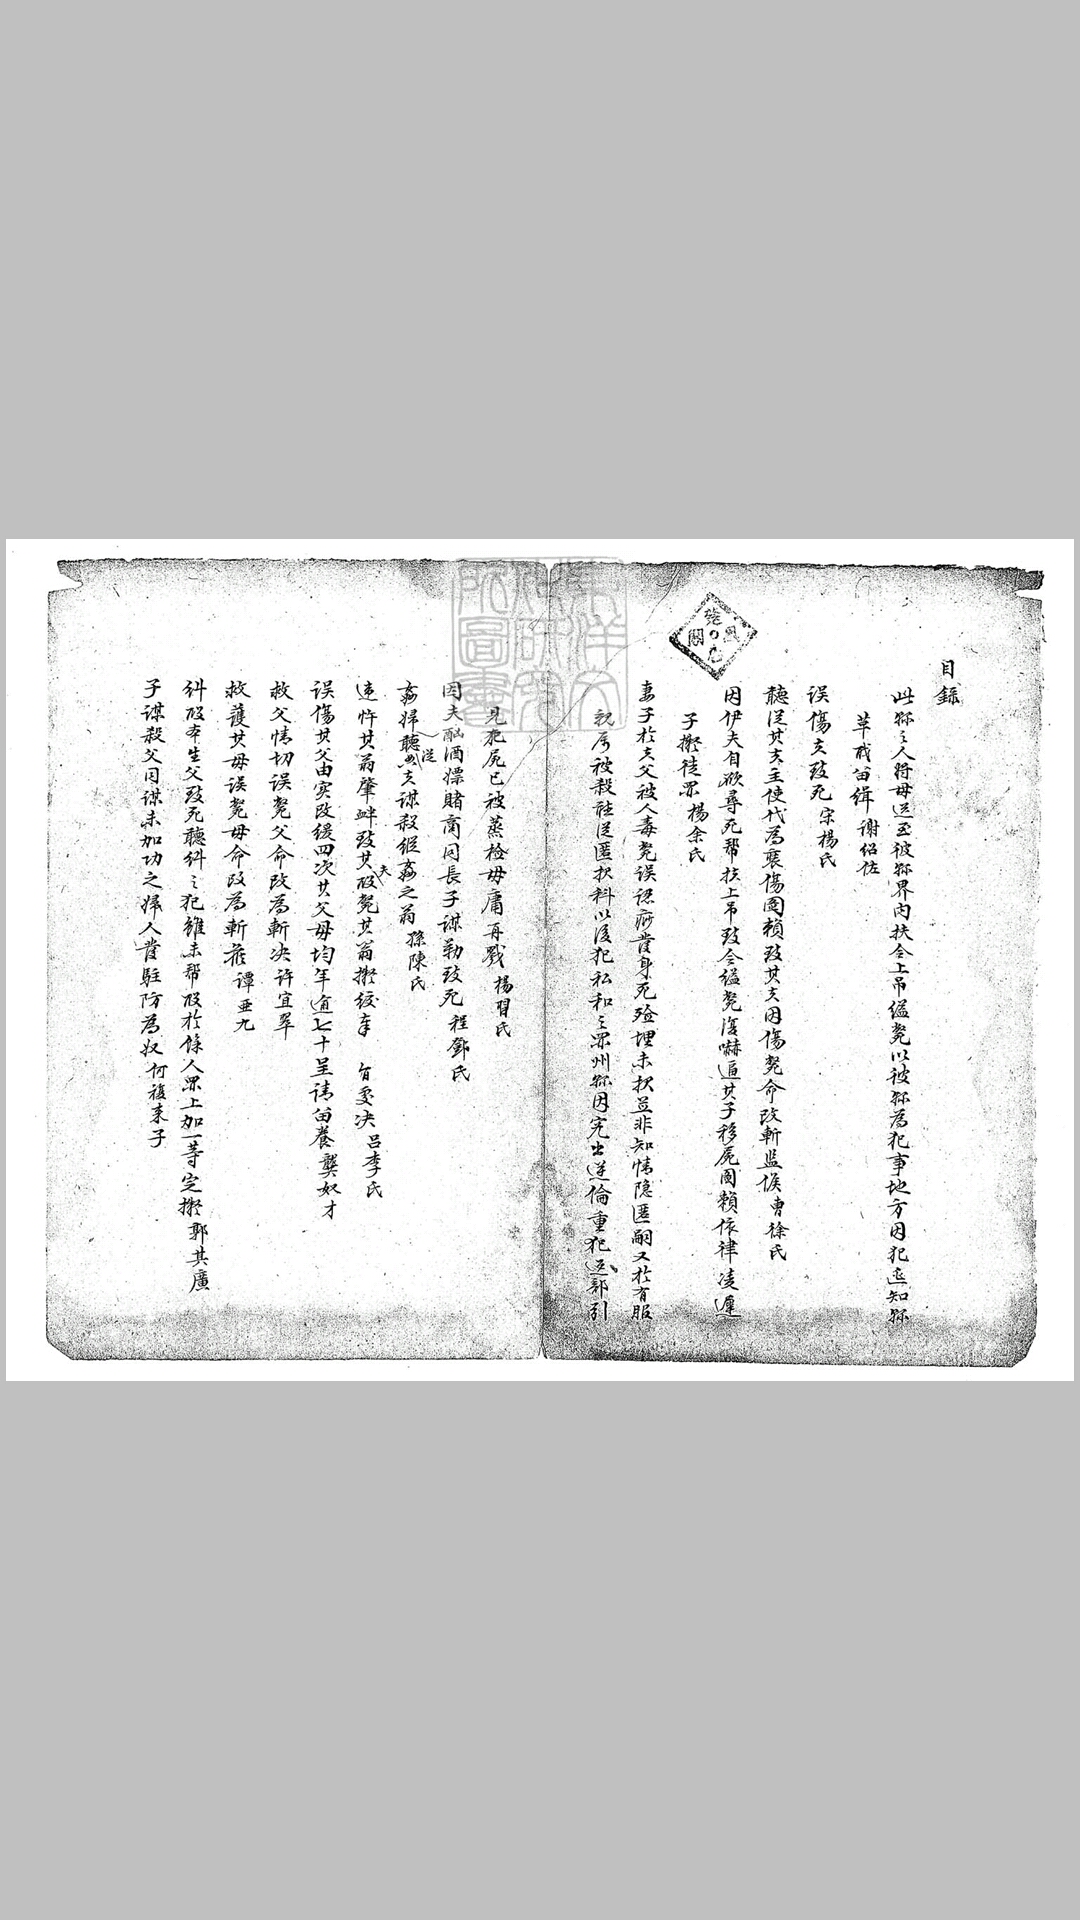 目錄
此縣之人將母送至彼縣界內扶令上吊縊斃以彼縣為犯事地方因犯逃知縣
革職留緝 謝紹佐
誤傷夫致死 宋楊氏
聽從其夫主使代為裝傷圖賴致其夫因傷斃命改斬監候 曹徐氏
因伊夫自欲尋死幫扶上吊致令縊斃復嚇逼其子移屍圖賴依律凌遲
子擬徒罪 楊余氏
妻子於夫父被人毒斃誤認痧發身死殮埋未報並非知情隱匿嗣又於有服
親屬被殺 從匿報科以復犯私和之罪州縣因完出逆倫重犯 部引
見犯屍已被蒸檢毋庸再戮 楊習氏
因夫酗酒嫖賭商同長子謀勒致死 程鄧氏
姦婦聽從夫謀殺縱姦之翁 孫陳氏
違忤其翁肇衅致其夫毆斃其翁擬絞 決 呂李氏
誤傷其父由實改緩四次其父母均年逾七十呈請留養 龔奴才
救父情切誤斃父命改為斬決 許宜翠
救護其母誤斃母命改為斬 譚亞九
糾毆本生父致死聽糾之犯雖未幫毆於餘人罪上加一等定擬 郭其廣
子謀殺父同謀未加功之婦人發駐防為奴 何複來子